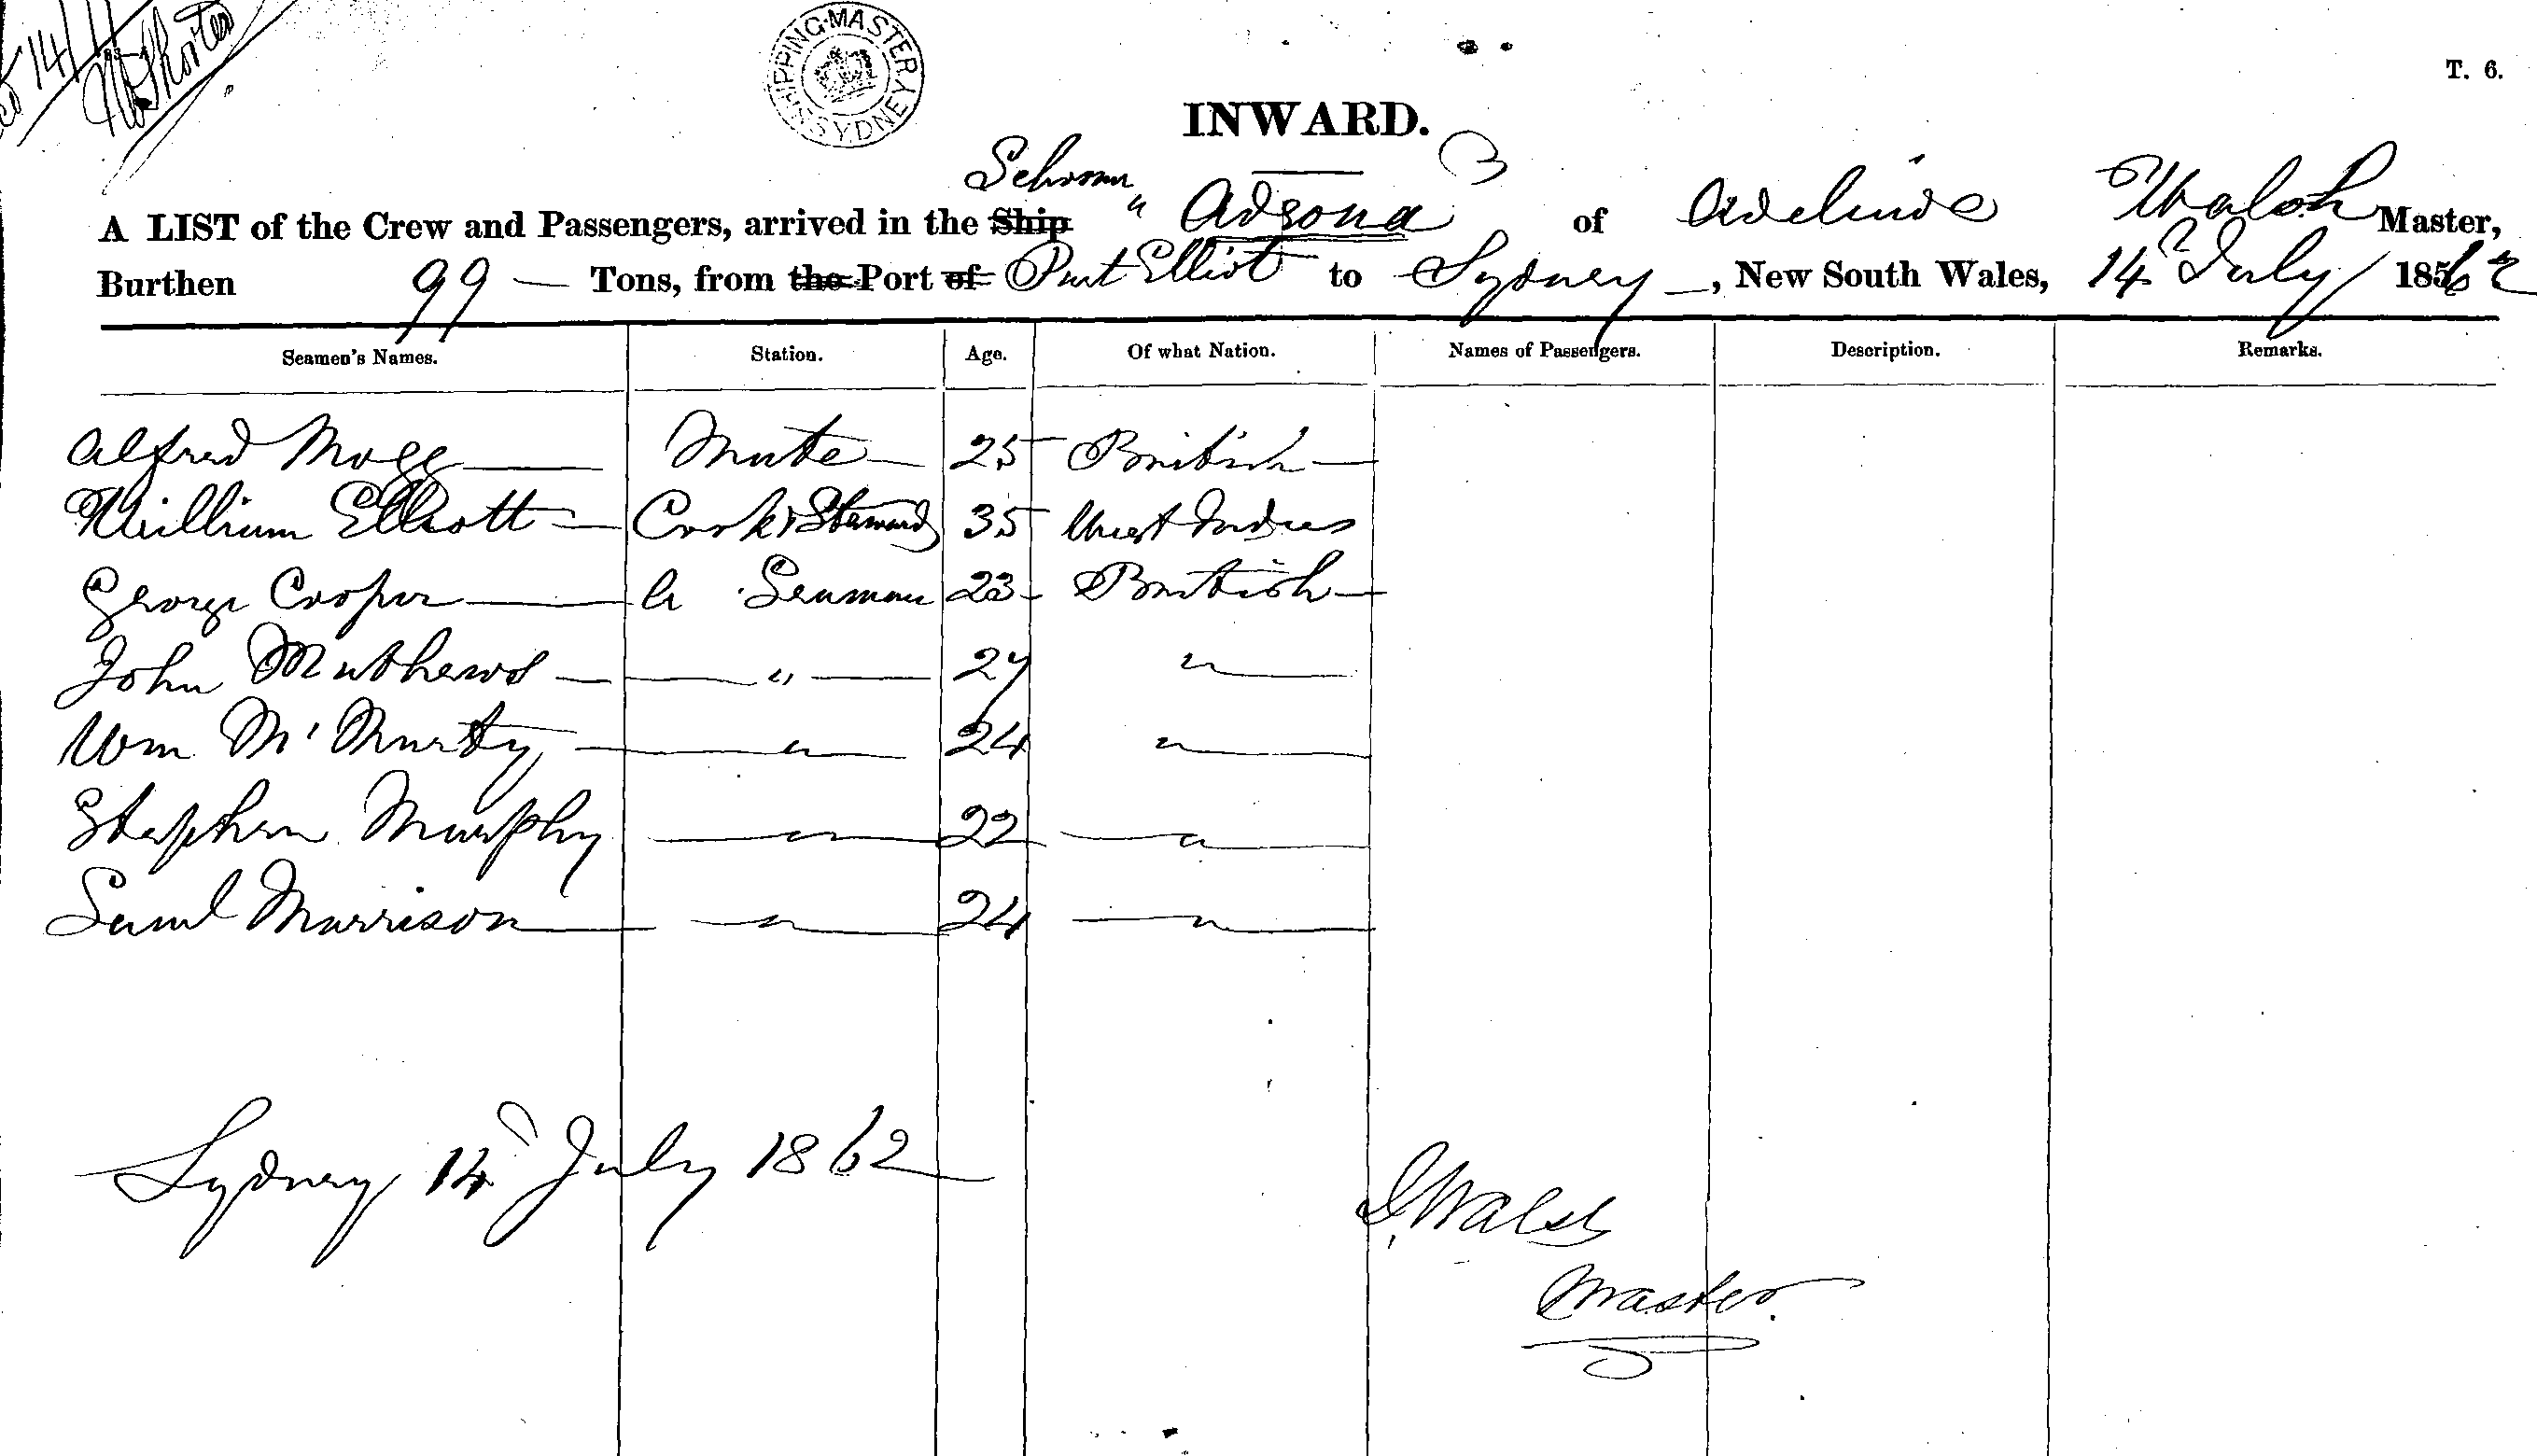 SHIPPING MASTER SYDNEY
T. 6.
INWARD.
A LIST of the Crew and Passengers, arrived in the Ship Schooner "Adsona" of Adelaide Walsh Master,
Burthen 99 Tons, from the Port of Port Elliot to Sydney, New South Wales, 14 July 1862
Seamen's Names. Station. Age. Of what Nation. Names of Passengers. Description. Remarks.
Alfred Mogg Mate 25 British
William Elliott Cook & Steward 35 West Indies
George Cooper A Seaman 23 British
John Mathews " 27 "
Wm McMurty " 24 "
Stephen Murphy " 22 "
Saml Morrison " 24 "
Sydney 14 July 1862
J. Walsh
Master